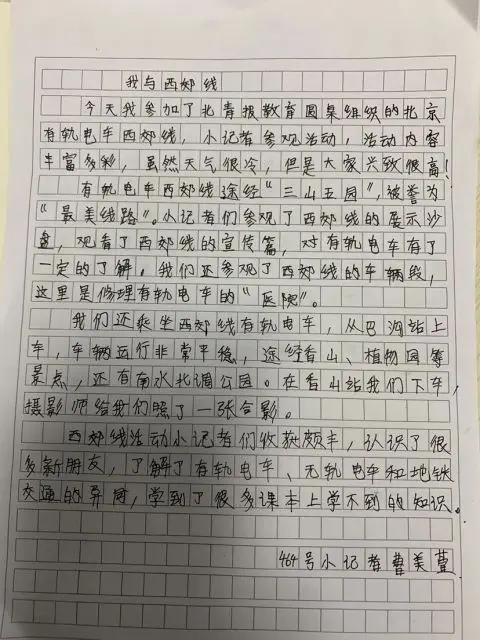 我与西郊线
今天我参加了北青报教育圆桌组织的北京
有轨电车西郊线，小记者参观活动，活动内容
丰富多彩，虽然天气很冷，但是大家兴致很高！
有轨电车西郊线途经“三山五园”，被誉为
“最美线路”。小记者们参观了西郊线的展示沙
盘，观看了西郊线的宣传篇，对有轨电车有了
一定的了解。我们还参观了西郊线的车辆段，
这里是修理有轨电车的“医院”。
我们还乘坐西郊线有轨电车，从巴沟站上
车，车辆运行非常平稳，途经香山、植物园等
景点，还有南水北调公园。在香山站我们下车，
摄影师给我们照了一张合影。
西郊线活动小记者们收获颇丰，认识了很
多新朋友，了解了有轨电车、无轨电车和地铁
交通的异同，学到了很多课本上学不到的知识。
464号小记者曹美萱